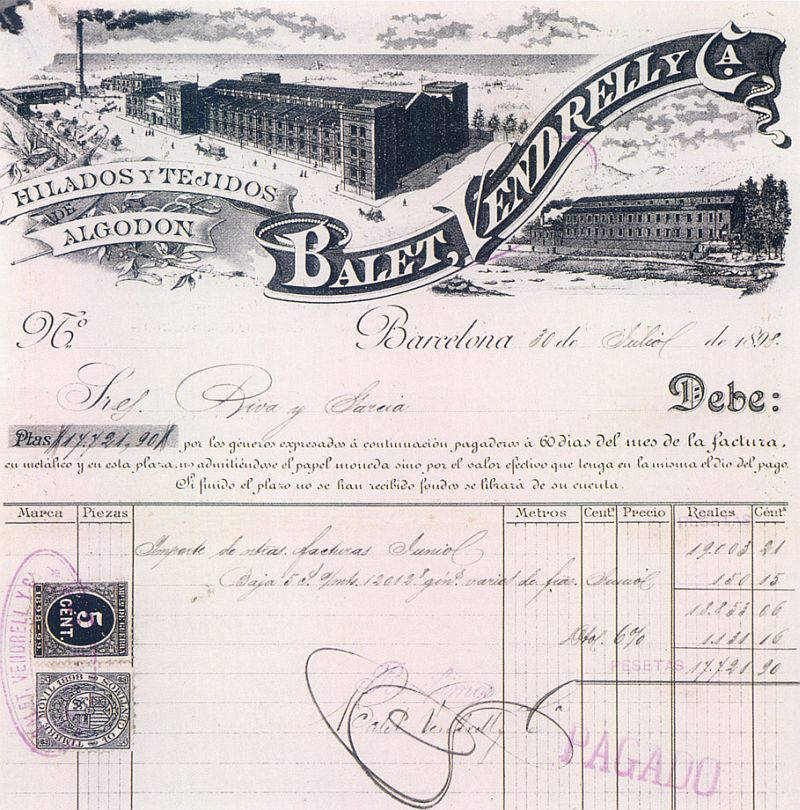 BALET, VENDRELL Y Cª.
HILADOS Y TEJIDOS
DE
ALGODON
Nº
Barcelona 30 de Juliol de 1898.
Sres. Riva y Garcia
Debe:
Ptas 17.721,90
por los géneros expresados á continuación, pagaderos á 60 dias del mes de la factura,
en metálico y en esta plaza, no admitiéndose el papel moneda sino por el valor efectivo que tenga en la misma el dia del pago.
Si fuido el plazo no se han recibido fondos se librará de su cuenta.
Marca Piezas Metros Centˢ Precio Reales Céntˢ
PESETAS
Importe de ntras. facturas Juniol 19.003 21
Baja 5 C. s/mts. 12012 genˢ. varios de fras. Juniol 150 15
18.853 06
Dto. 6% 1.131 16
PESETAS 17.721 90
BALET, VENDRELL Y Cª
5 CÉNT.
1898-99
TIMBRE MÓVIL 1898
Balet Vendrell y Cª
PAGADO